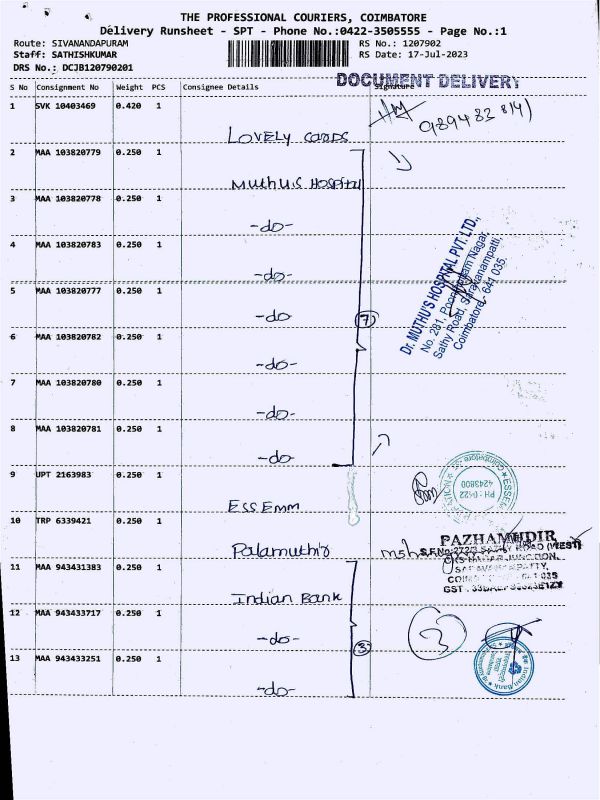 THE PROFESSIONAL COURIERS, COIMBATORE
Delivery Runsheet - SPT - Phone No.:0422-3505555 - Page No.:1
Route: SIVANANDAPURAM
Staff: SATHISHKUMAR
DRS No.: DCJB120790201
RS No.: 1207902
RS Date: 17-Jul-2023
DOCUMENT DELIVERY
S No Consignment No Weight PCS Consignee Details Signature
1 SVK 10403469 0.420 1
Lovely cards
2 MAA 103820779 0.250 1
Muthu's Hospital
3 MAA 103820778 0.250 1
-do-
4 MAA 103820783 0.250 1
-do-
5 MAA 103820777 0.250 1
-do
6 MAA 103820782 0.250 1
-do-
7 MAA 103820780 0.250 1
-do-
8 MAA 103820781 0.250 1
-do-
7
Dr. MUTHU'S HOSPITAL PVT. LTD.,
No. 281, Nagar,
Sathy Road, Saravanampatti,
Coimbatore - 641 035.
9 UPT 2163983 0.250 1
ESSEMM
PH-0422
4243800
10 TRP 6339421 0.250 1
Palamuthir
PAZHAMUDIR
S.F.No-272/3 SATHY ROAD (WEST)
JUNCTION,
11 MAA 943431383 0.250 1
Indian Bank
12 MAA 943433717 0.250 1
-do-
13 MAA 943433251 0.250 1
-do-
3
3
Indian Bank